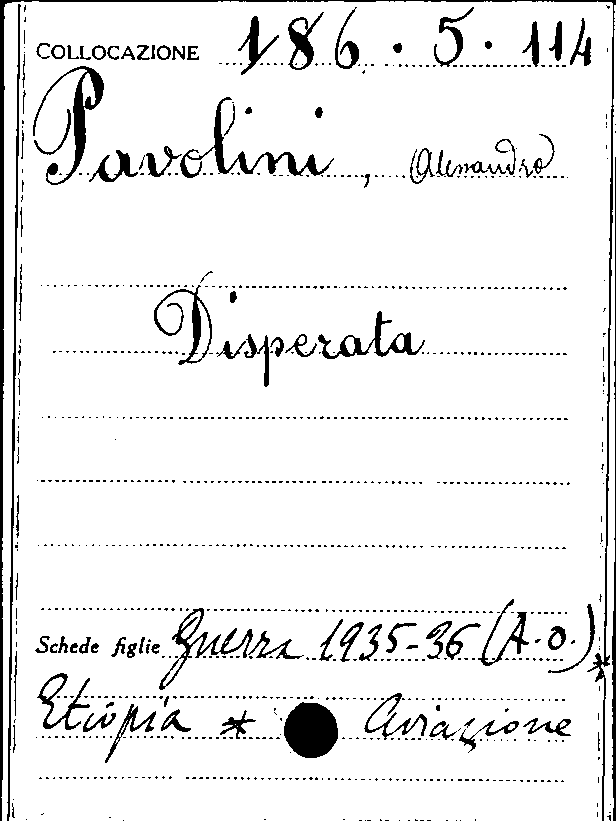 COLLOCAZIONE 186.5.114
Pavolini, Alessandro
Disperata
Schede figlie Guerra 1935-36 (A.O.) *
Etiopia * Aviazione